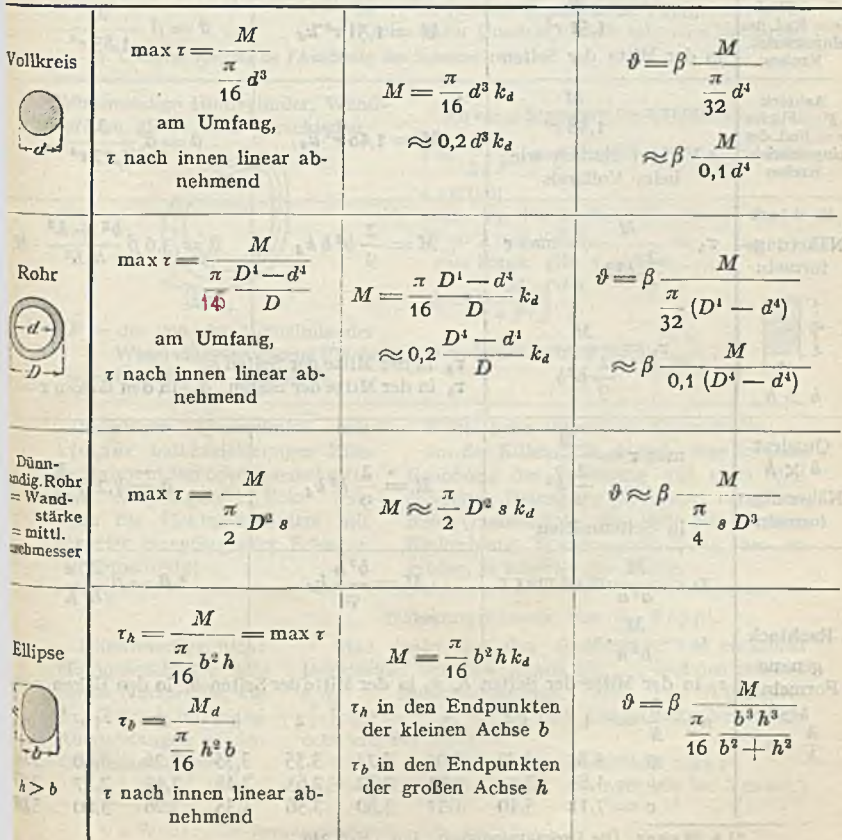 Vollkreis
d
max τ = M / (π/16 d³)
am Umfang,
τ nach innen linear ab-
nehmend
M = π/16 d³ k_d
≈ 0,2 d³ k_d
ϑ = β M / (π/32 d⁴)
≈ β M / (0,1 d⁴)
Rohr
d
D
max τ = M / (π/16 (D⁴ — d⁴)/D)
am Umfang,
τ nach innen linear ab-
nehmend
M = π/16 (D⁴ — d⁴)/D k_d
≈ 0,2 (D⁴ — d⁴)/D k_d
ϑ = β M / (π/32 (D⁴ — d⁴))
≈ β M / (0,1 (D⁴ — d⁴))
Dünn-
Rohr
= Wand-
stärke
= mittl.
max τ = M / (π/2 D² s)
M ≈ π/2 D² s k_d
ϑ ≈ β M / (π/4 s D³)
Ellipse
b
h > b
τ_h = M / (π/16 b² h) = max τ
τ_b = M_d / (π/16 h² b)
τ nach innen linear ab-
nehmend
M = π/16 b² h k_d
τ_h in den Endpunkten
der kleinen Achse b
τ_b in den Endpunkten
der großen Achse h
ϑ = β M / (π/16 b³ h³/(b² + h²))